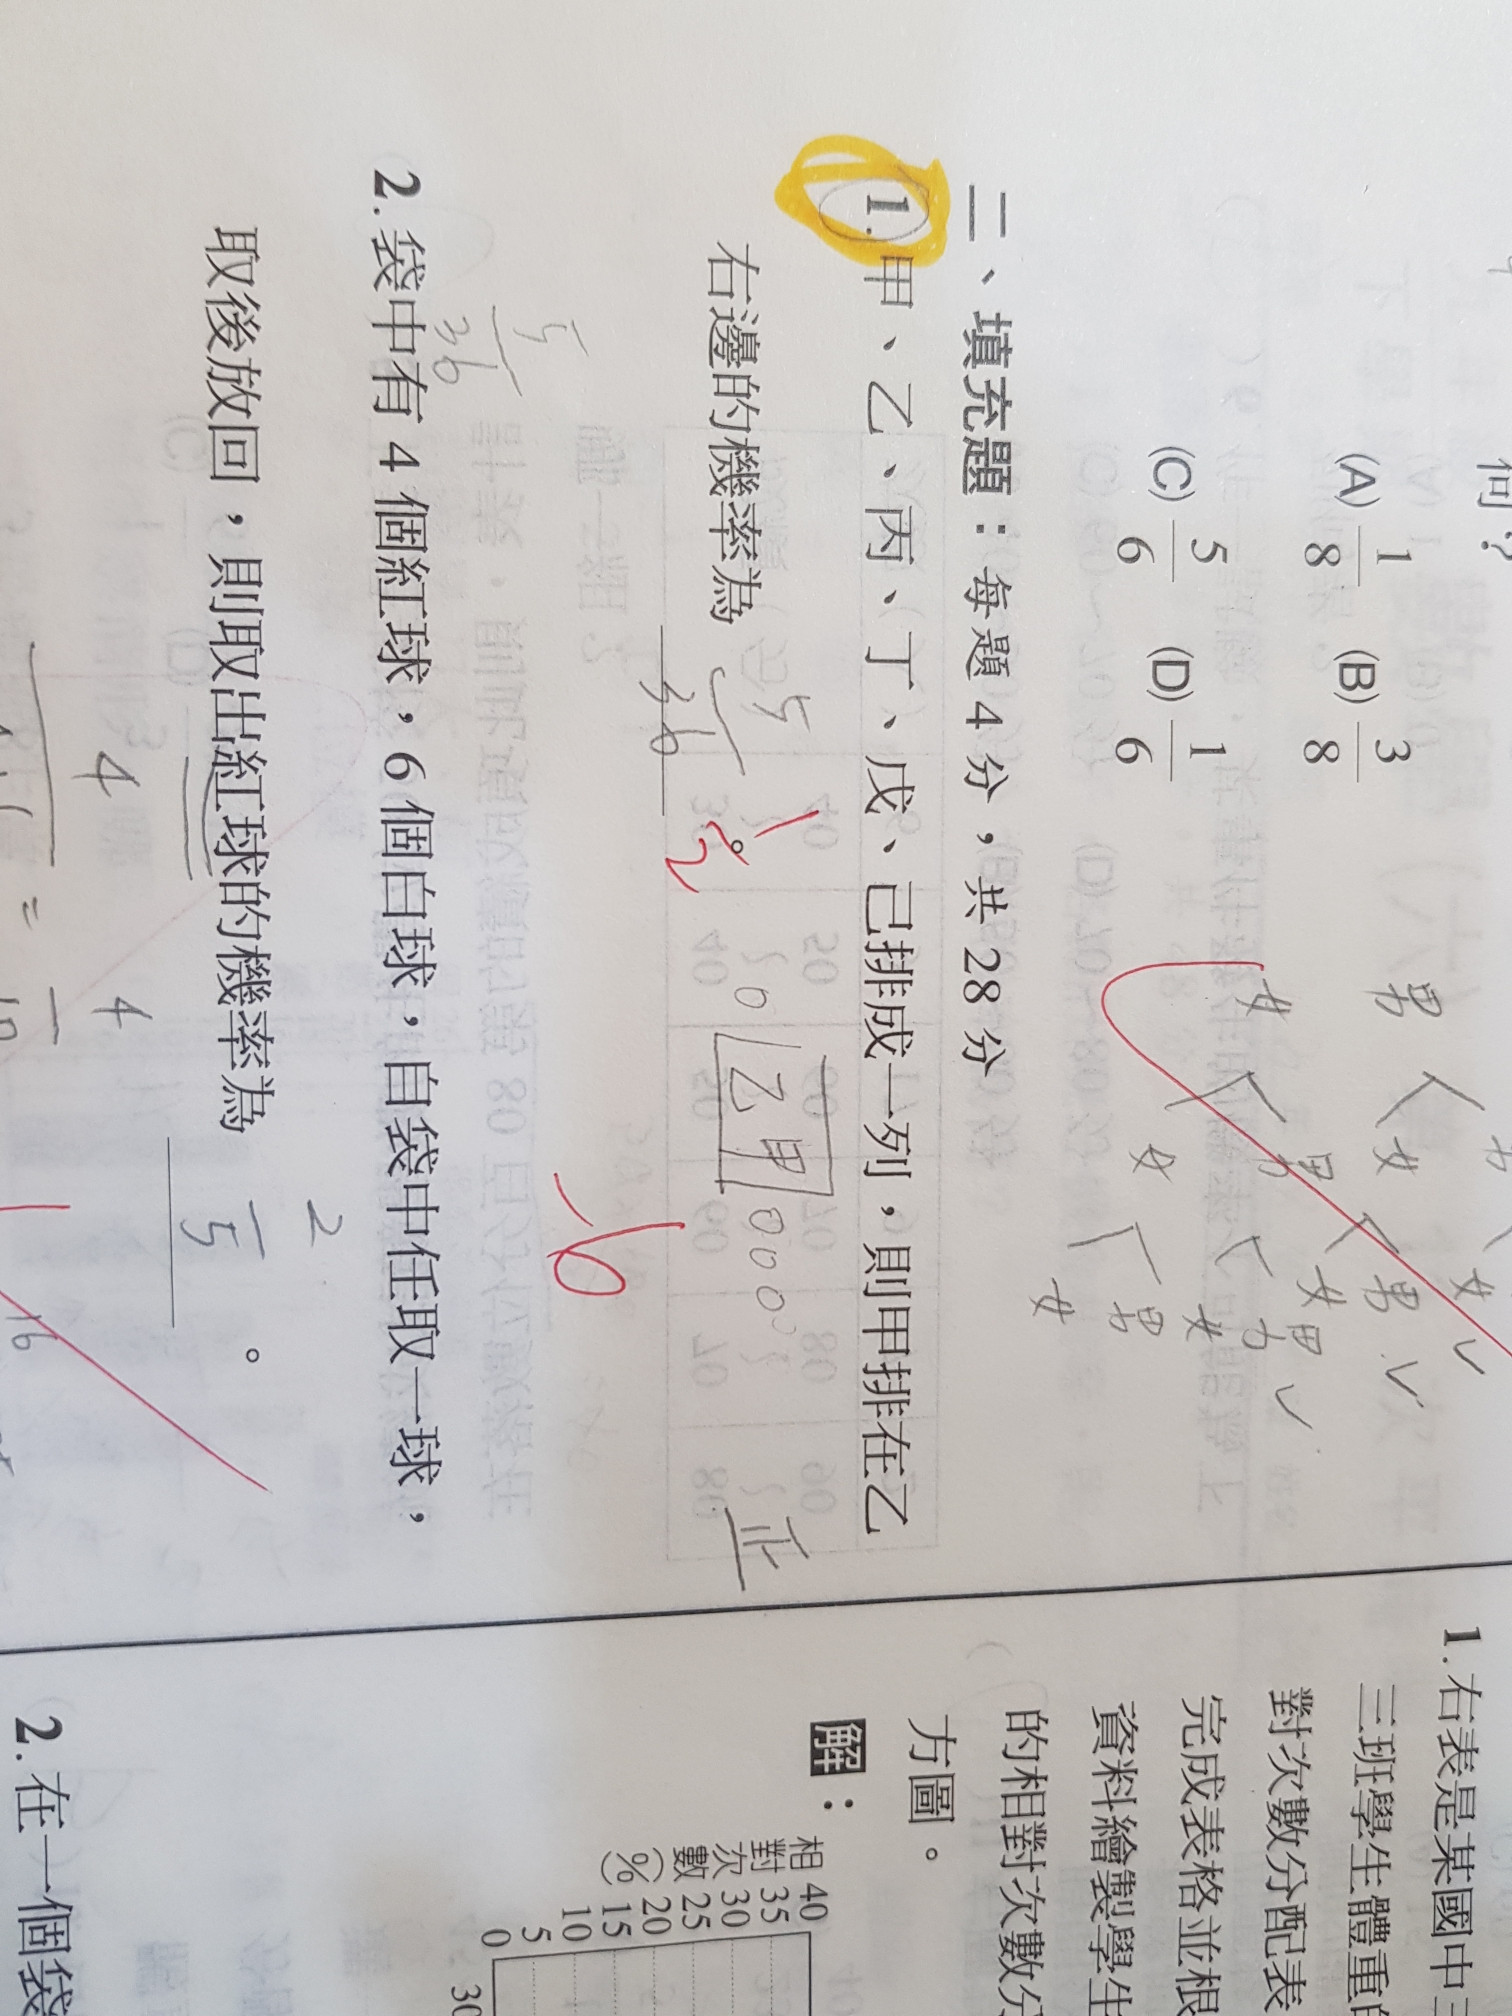 何?
(A) 1/8 (B) 3/8
(C) 5/6 (D) 1/6
男
女
女
男
女
男
女
女
男
女
男
女
二、填充題:每題 4 分,共 28 分
1. 甲、乙、丙、丁、戊、己排成一列,則甲排在乙
右邊的機率為 5/36 。
1/2
0 乙甲 000
正
5/36
-6
2. 袋中有 4 個紅球,6 個白球,自袋中任取一球,
取後放回,則取出紅球的機率為 2/5 。
4
4
=
1. 右表是某國中三
三班學生體重的
對次數分配表
完成表格並根
資料繪製學生
的相對次數分
方圖。
解:
相對次數(%)
40
35
30
25
20
15
10
5
0
30
2. 在一個袋